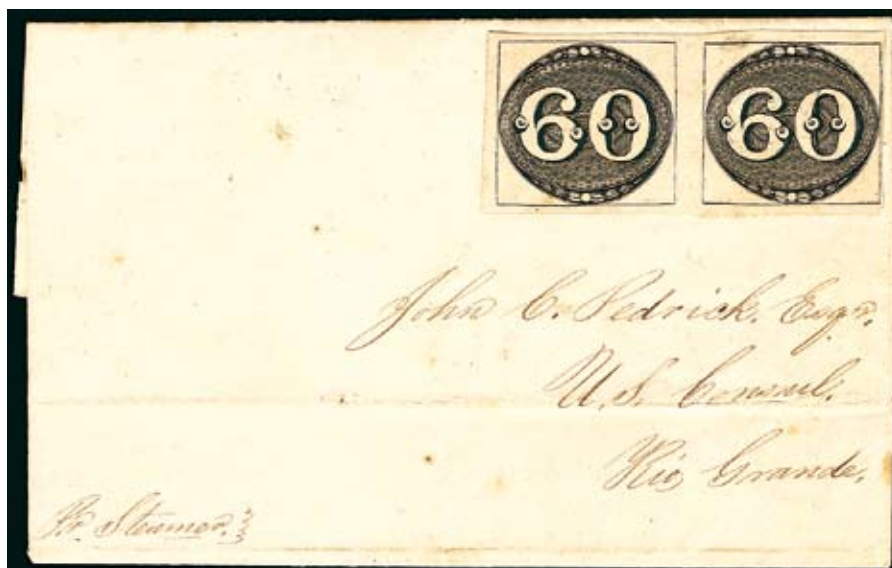 60 60
John C. Pedrick. Esqr.
U.S. Consul.
Rio Grande.
Pr. Steamer.